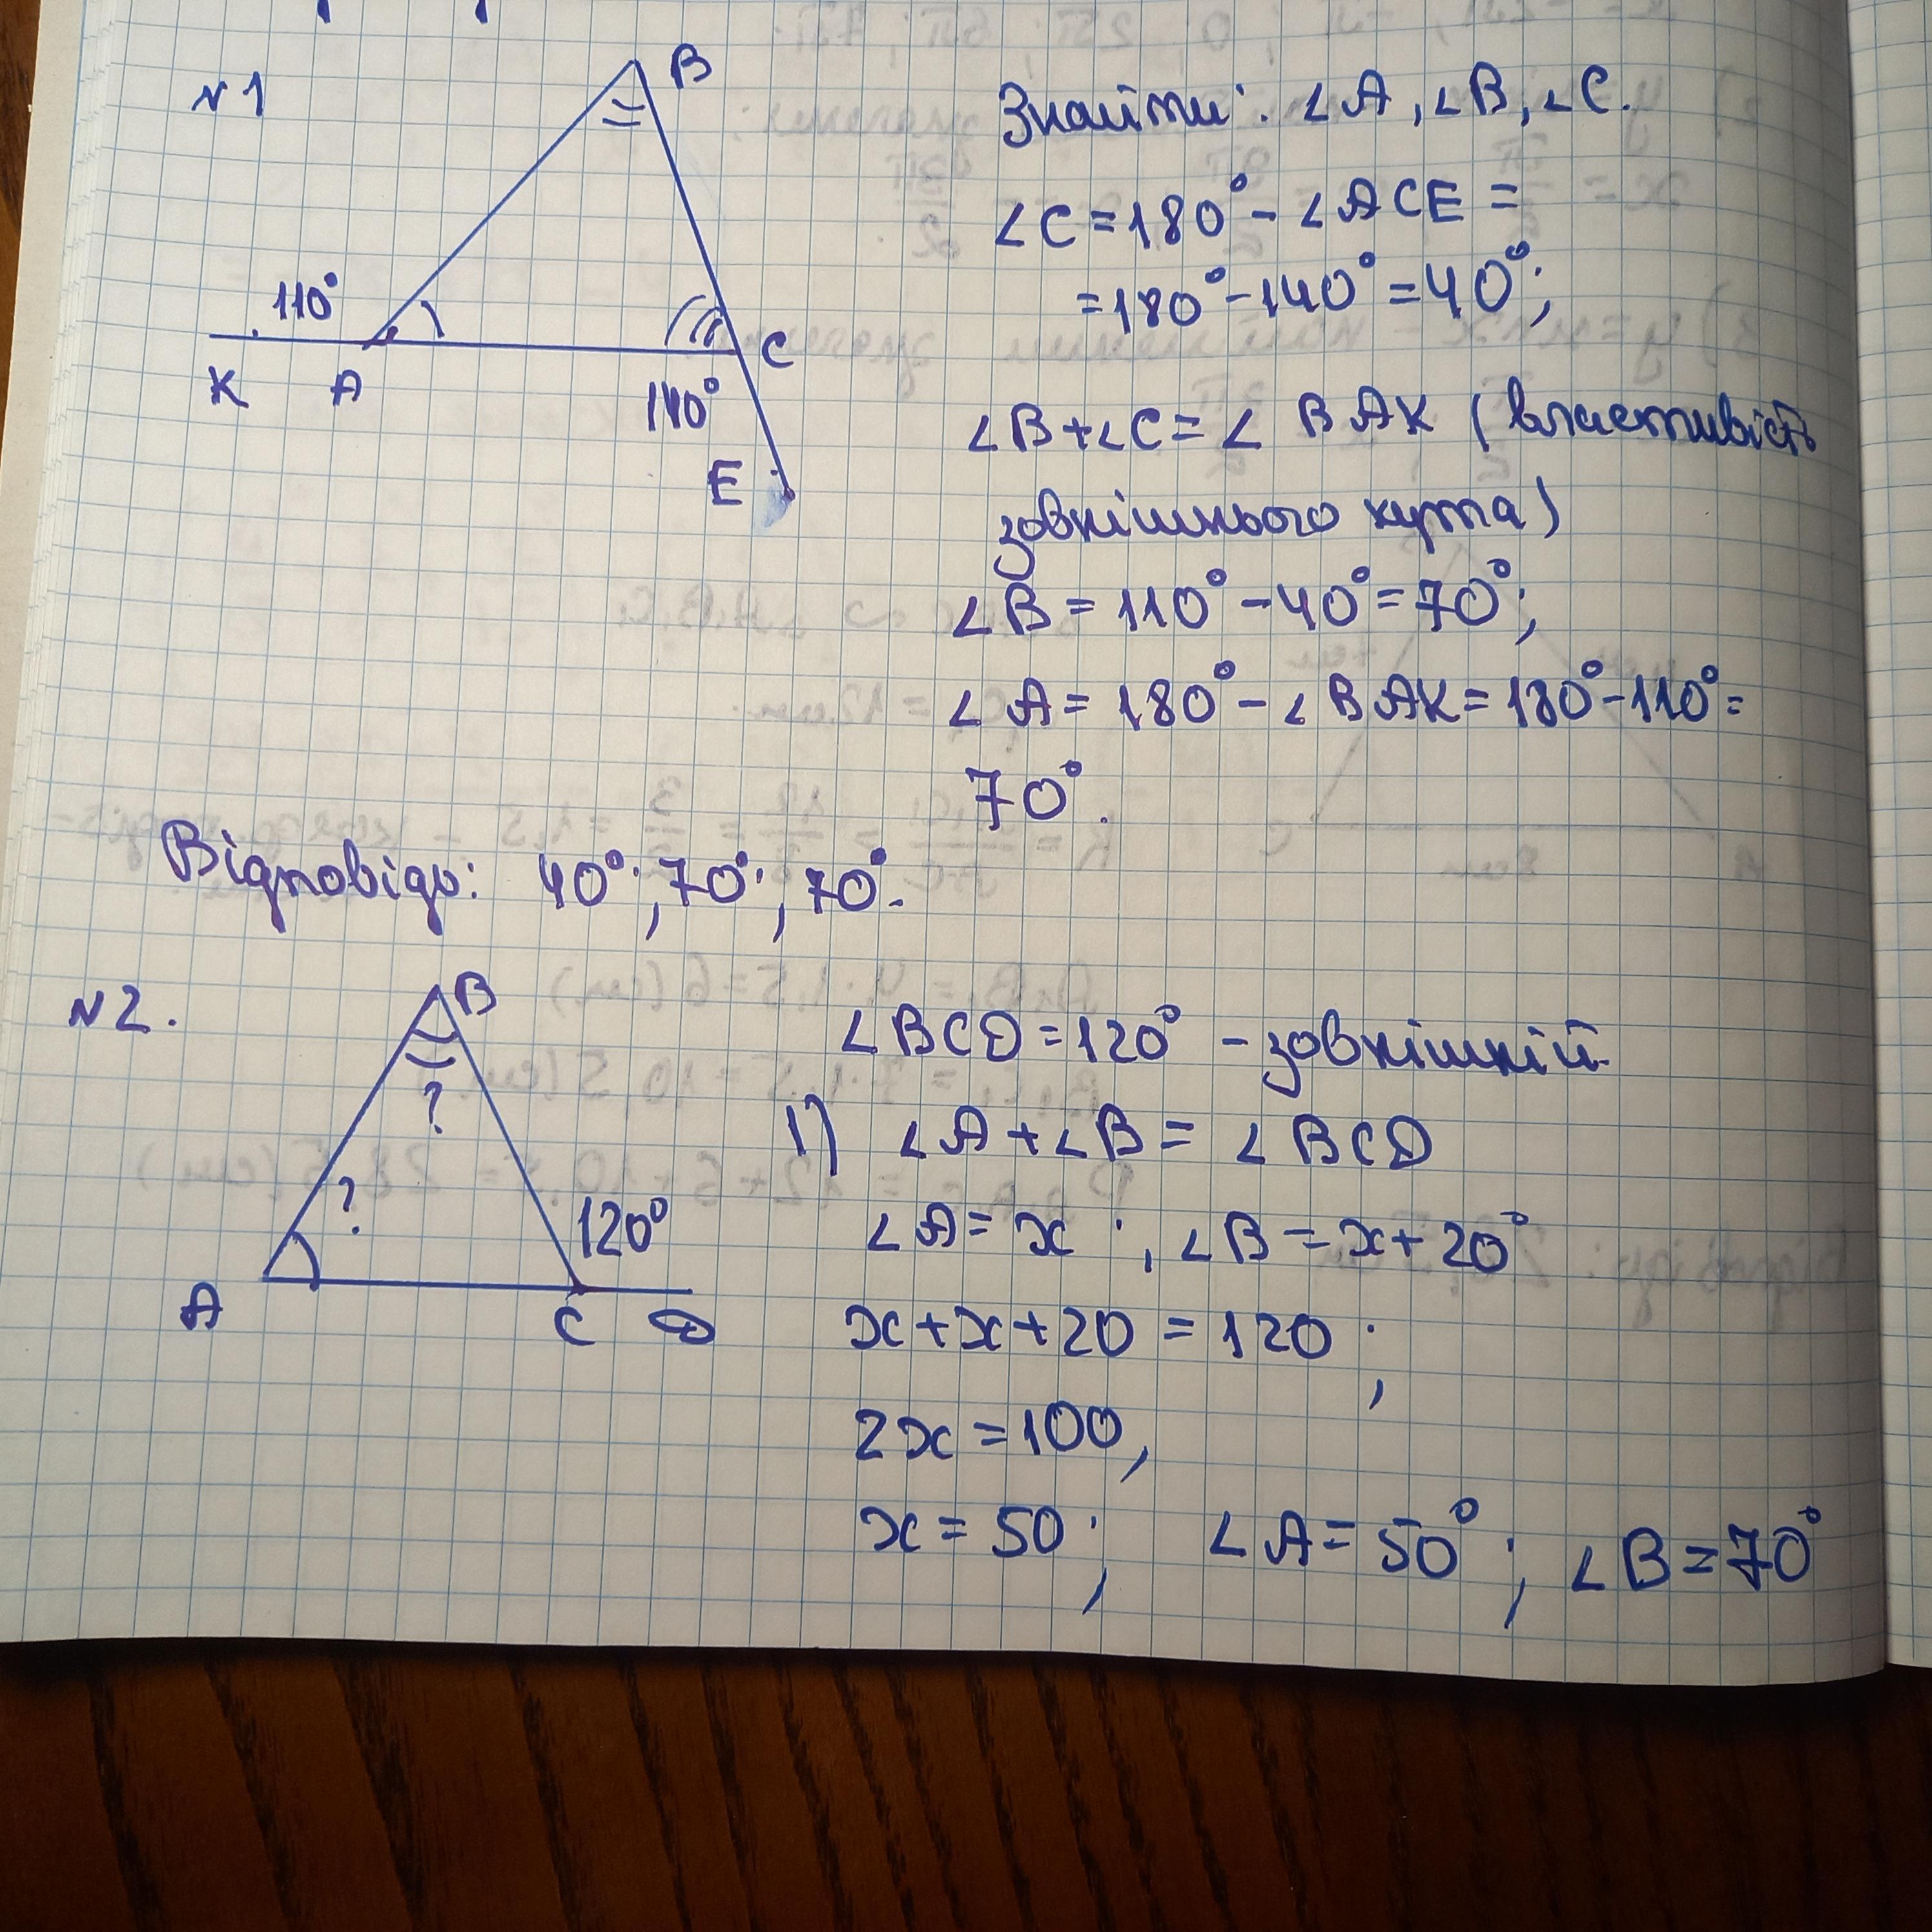 №1
B
110°
K
A
C
140°
E
Знайти: ∠A, ∠B, ∠C.
∠C = 180° - ∠ACE =
= 180° - 140° = 40°;
∠B + ∠C = ∠BAK (властивість
зовнішнього кута)
∠B = 110° - 40° = 70°;
∠A = 180° - ∠BAK = 180° - 110° =
70°.
Відповідь: 40°; 70°; 70°.
№2.
B
?
?
120°
A
C
D
∠BCD = 120° - зовнішній
1) ∠A + ∠B = ∠BCD
∠A = x; ∠B = x + 20°
x + x + 20 = 120;
2x = 100,
x = 50; ∠A = 50°; ∠B = 70°